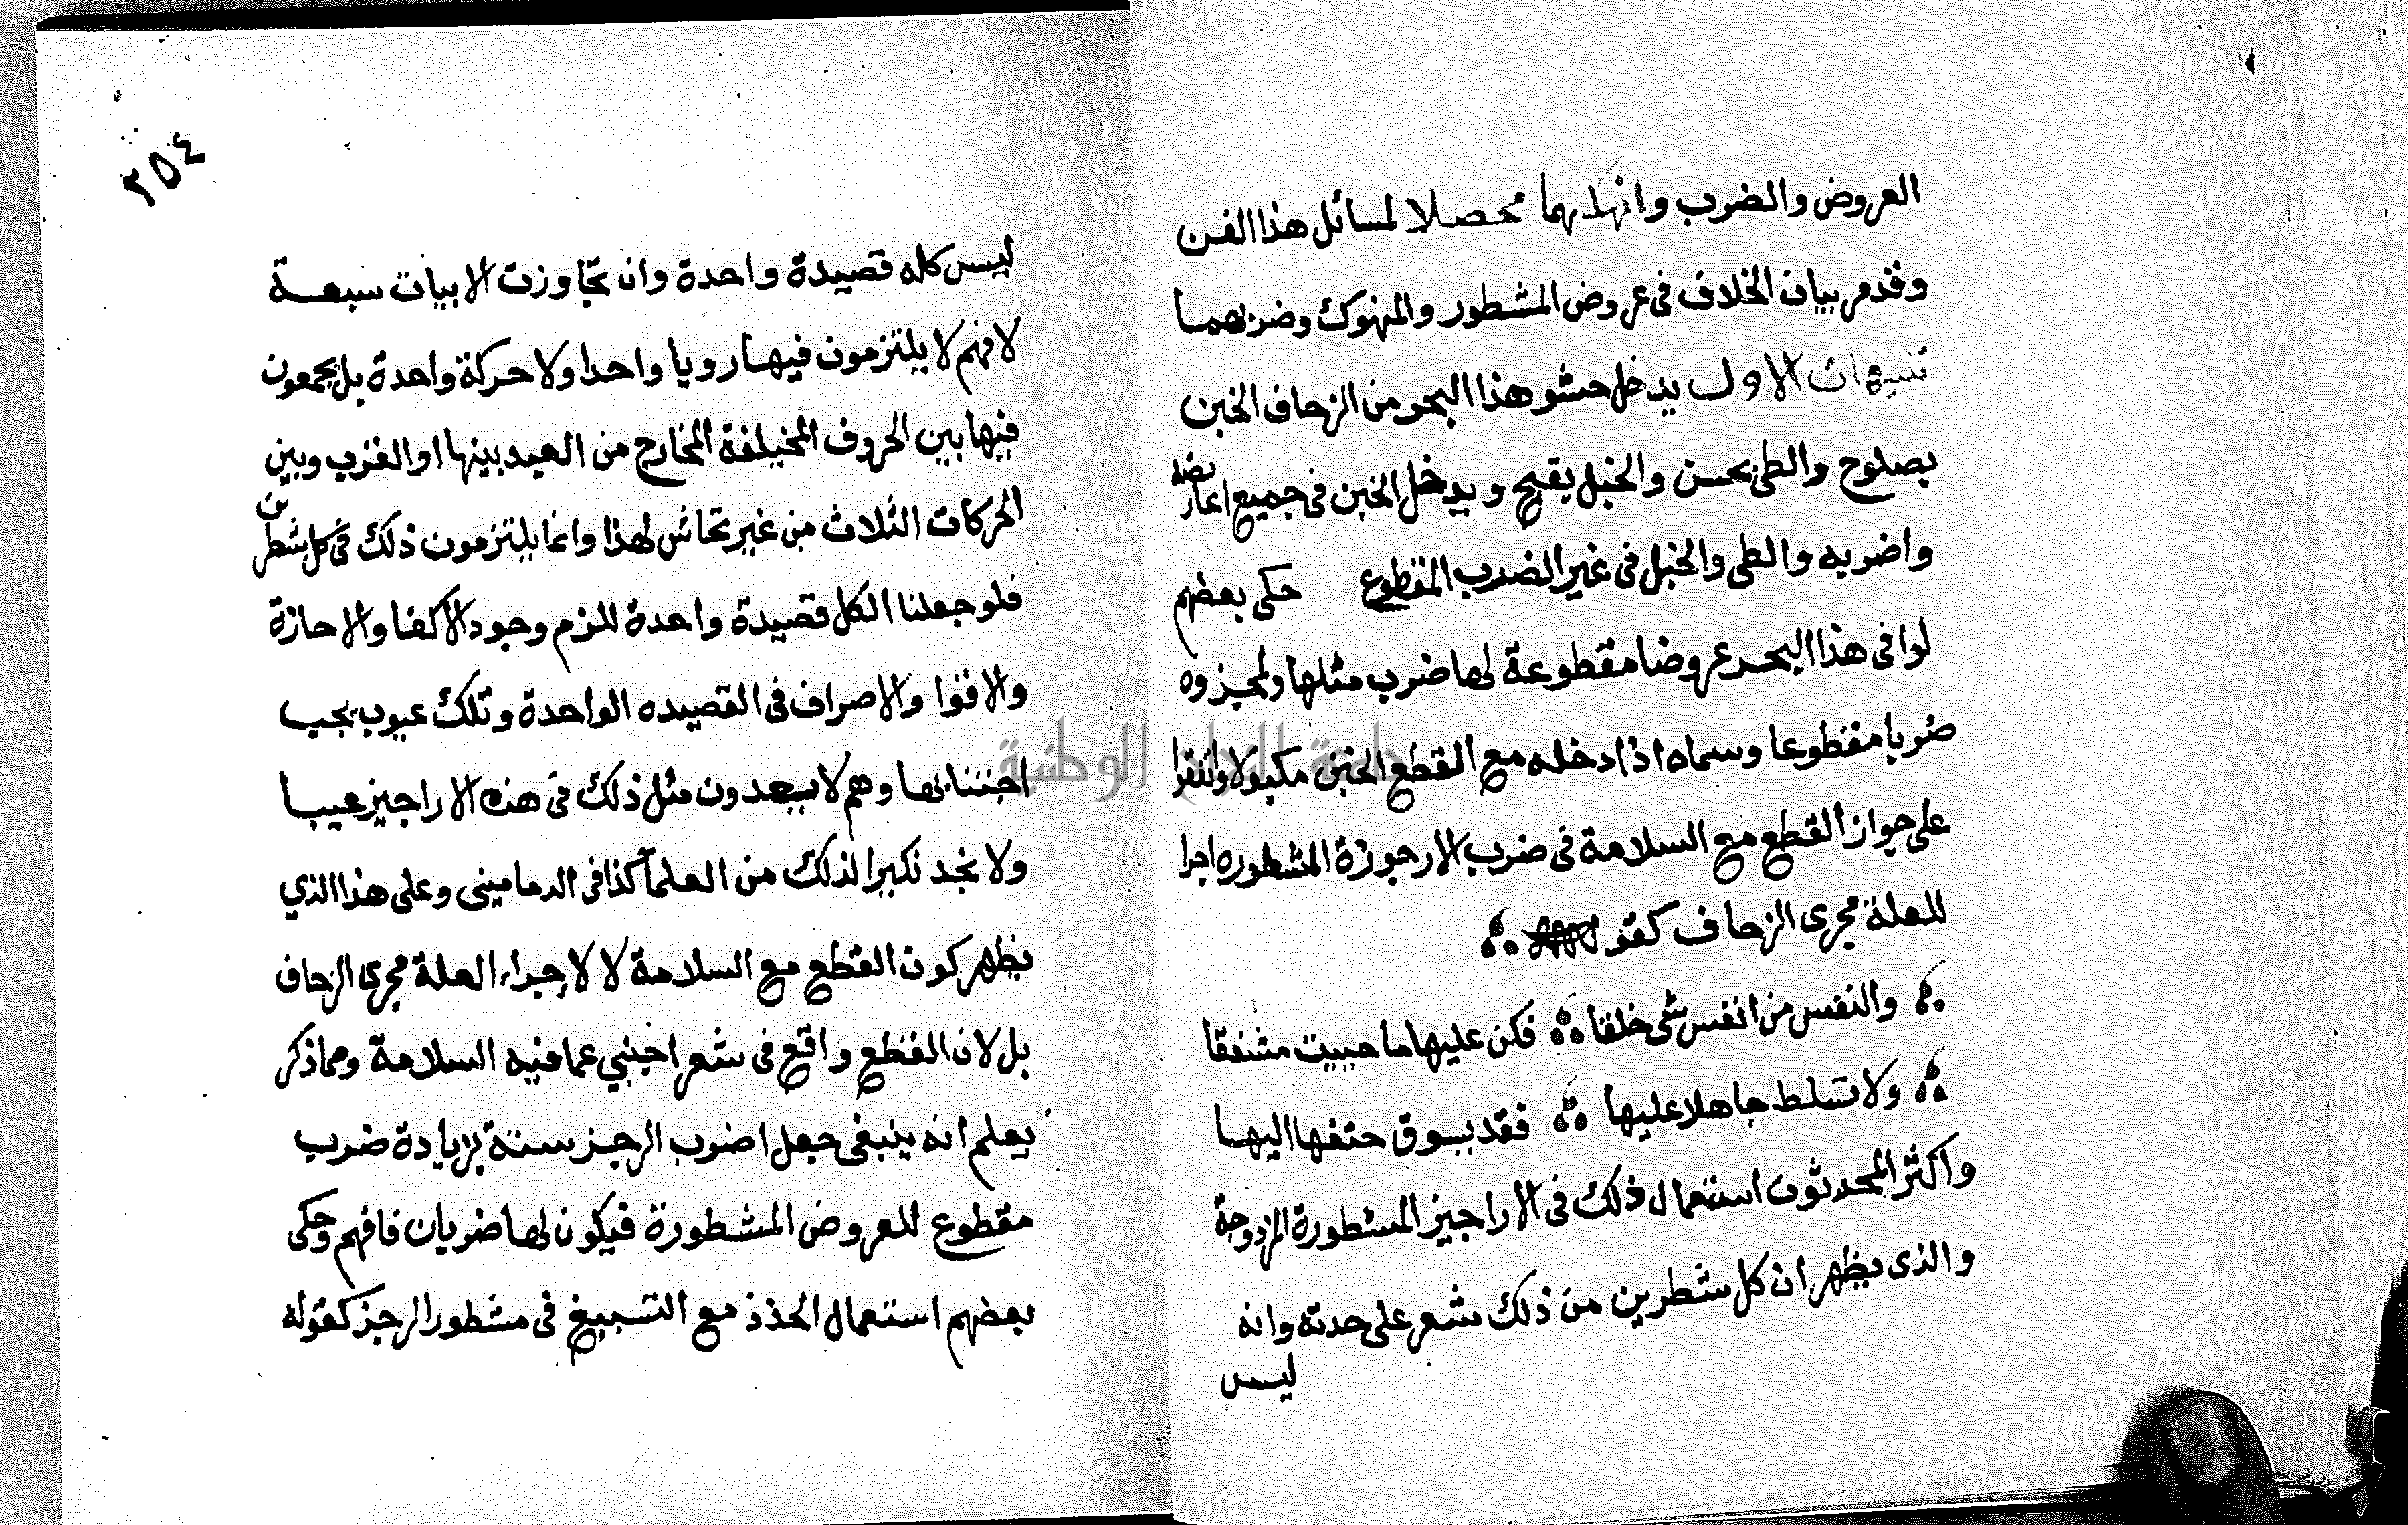 العروض والضرب وانهكهما محصلا لمسائل هذا الفن
وقد مر بيان الخلاف فى عروض المشطور والمنهوك وضربهما
تنبيهات الاول يدخل حشو هذا البحر من الزحاف الخبن
بصلوح والطى بحسن والخبل بقبح ويدخل الخبن فى جميع اعاريضه
واضربه والطى والخبل فى غير الضرب المقطوع حكى بعضهم
فى هذا البحر عروضا مقطوعة لها ضرب مثلها
ضربا مقطوعا وسماه اذا دخله مع القطع الخبن مكبولا
على جواز القطع مع السلامة فى ضرب الارجوزة المشطوره اجرا
للعلة مجرى الزحاف كقو
والنفس من انفس شى خلقا فكن عليها ما حييت مشفقا
ولا تسلط جاهلا عليها فقد يسوق حتفها اليها
واكثر المحدثون استعمال ذلك فى الاراجيز المشطورة المزدوجة
والذى يظهر ان كل شطرين من ذلك شعر على حدته وانه
ليس
٢٥٤
ليس كله قصيدة واحدة وان تجاوزت الابيات سبعة
لانهم لا يلتزمون فيها رويا واحدا ولا حركة واحدة بل يجمعون
فيها بين الحروف المختلفة المخارج من البعيد بينها او القرب وبين
الحركات الثلاث من غير تحاش لهذا وانما يلتزمون ذلك فى كل شطرين
فلو جعلنا الكل قصيدة واحدة للزم وجود الاكفا والاجازة
والاقوا والاصراف فى القصيده الواحدة وتلك عيوب يجب
اجتنابها وهم لا يعدون مثل ذلك فى هذه الاراجيز عيبا
ولا نجد نكيرا لذلك من العلمآ كذا فى الدمامينى وعلى هذا الذي
يظهر كون القطع مع السلامة لا لاجراء العلة مجرى الزحاف
بل لان القطع واقع فى شعر اجنبي عما فيه السلامة ومما ذكر
يعلم انه ينبغى جعل اضرب الرجز ستة بزيادة ضرب
مقطوع للعروض المشطورة فيكون لها ضربان فافهم وحكى
بعضهم استعمال الحذذ مع التسبيغ فى مشطور الرجز كقوله